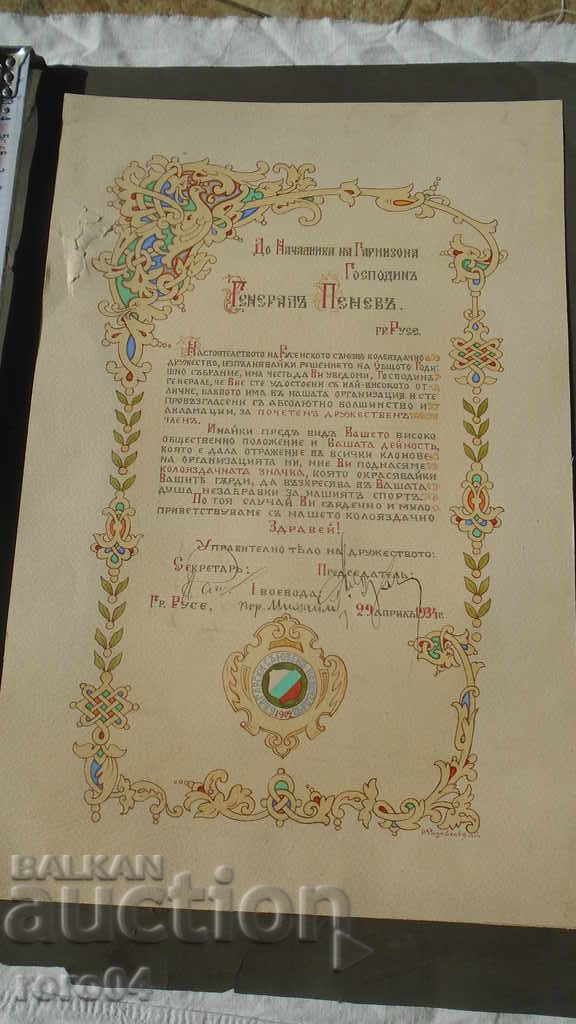 До Началника на Гарнизона
Господинъ
Генералъ Пеневъ.
гр. Русе.
Настоятелството на Русенското съюзно колоездачно
дружество, изпълнявайки решението на Общото Годи-
шно събрание, има честь да Ви уведоми, Господинъ
Генерале, че Вие сте удостоени съ най-високото от-
личие, каквото има въ нашата организация и сте
провъзгласени съ абсолютно болшинство и
акламации, за почетенъ дружественъ
членъ.
Имайки предъ видъ Вашето високо
обществено положение и Вашата дейность,
която е дала отражение въ всички клонове
на организацията ни, ние Ви поднасяме
колояздачната значка, която окрасявайки
Вашитѣ гѫрди, да възкресява въ Вашата
душа незабравки за нашиятъ спортъ.
По тоя случай Ви сърдечно и мило
приветствуваме съ нашето колоездачно
Здравей!
Управително тѣло на дружеството:
Секретарь: Председатель:
I воевода:
Гр. Русе, 29 Априлъ 1934 г.
1902
BALKAN
auction
roro04